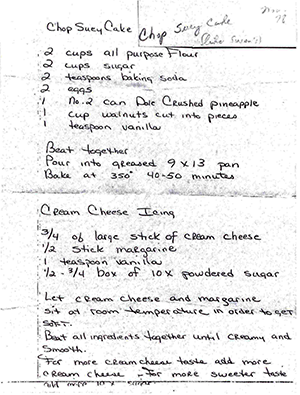 Chop Suey Cake
Chop Suey Cake
2 cups all purpose Flour
2 cups sugar
2 teaspoons baking soda
2 eggs
1 No. 2 can Dole Crushed pineapple
1 cup walnuts cut into pieces
1 teaspoon vanilla
Beat together
Pour into greased 9 x 13 pan
Bake at 350° 40-50 minutes
Cream Cheese Icing
3/4 of large stick of cream cheese
1/2 stick margarine
1 teaspoon vanilla
1/2 - 3/4 box of 10X powdered sugar
Let cream cheese and margarine
sit at room temperature in order to get
soft.
Beat all ingredients together until creamy and
smooth.
For more cream cheese taste add more
cream cheese - For more sweeter taste
add more 10X sugar.